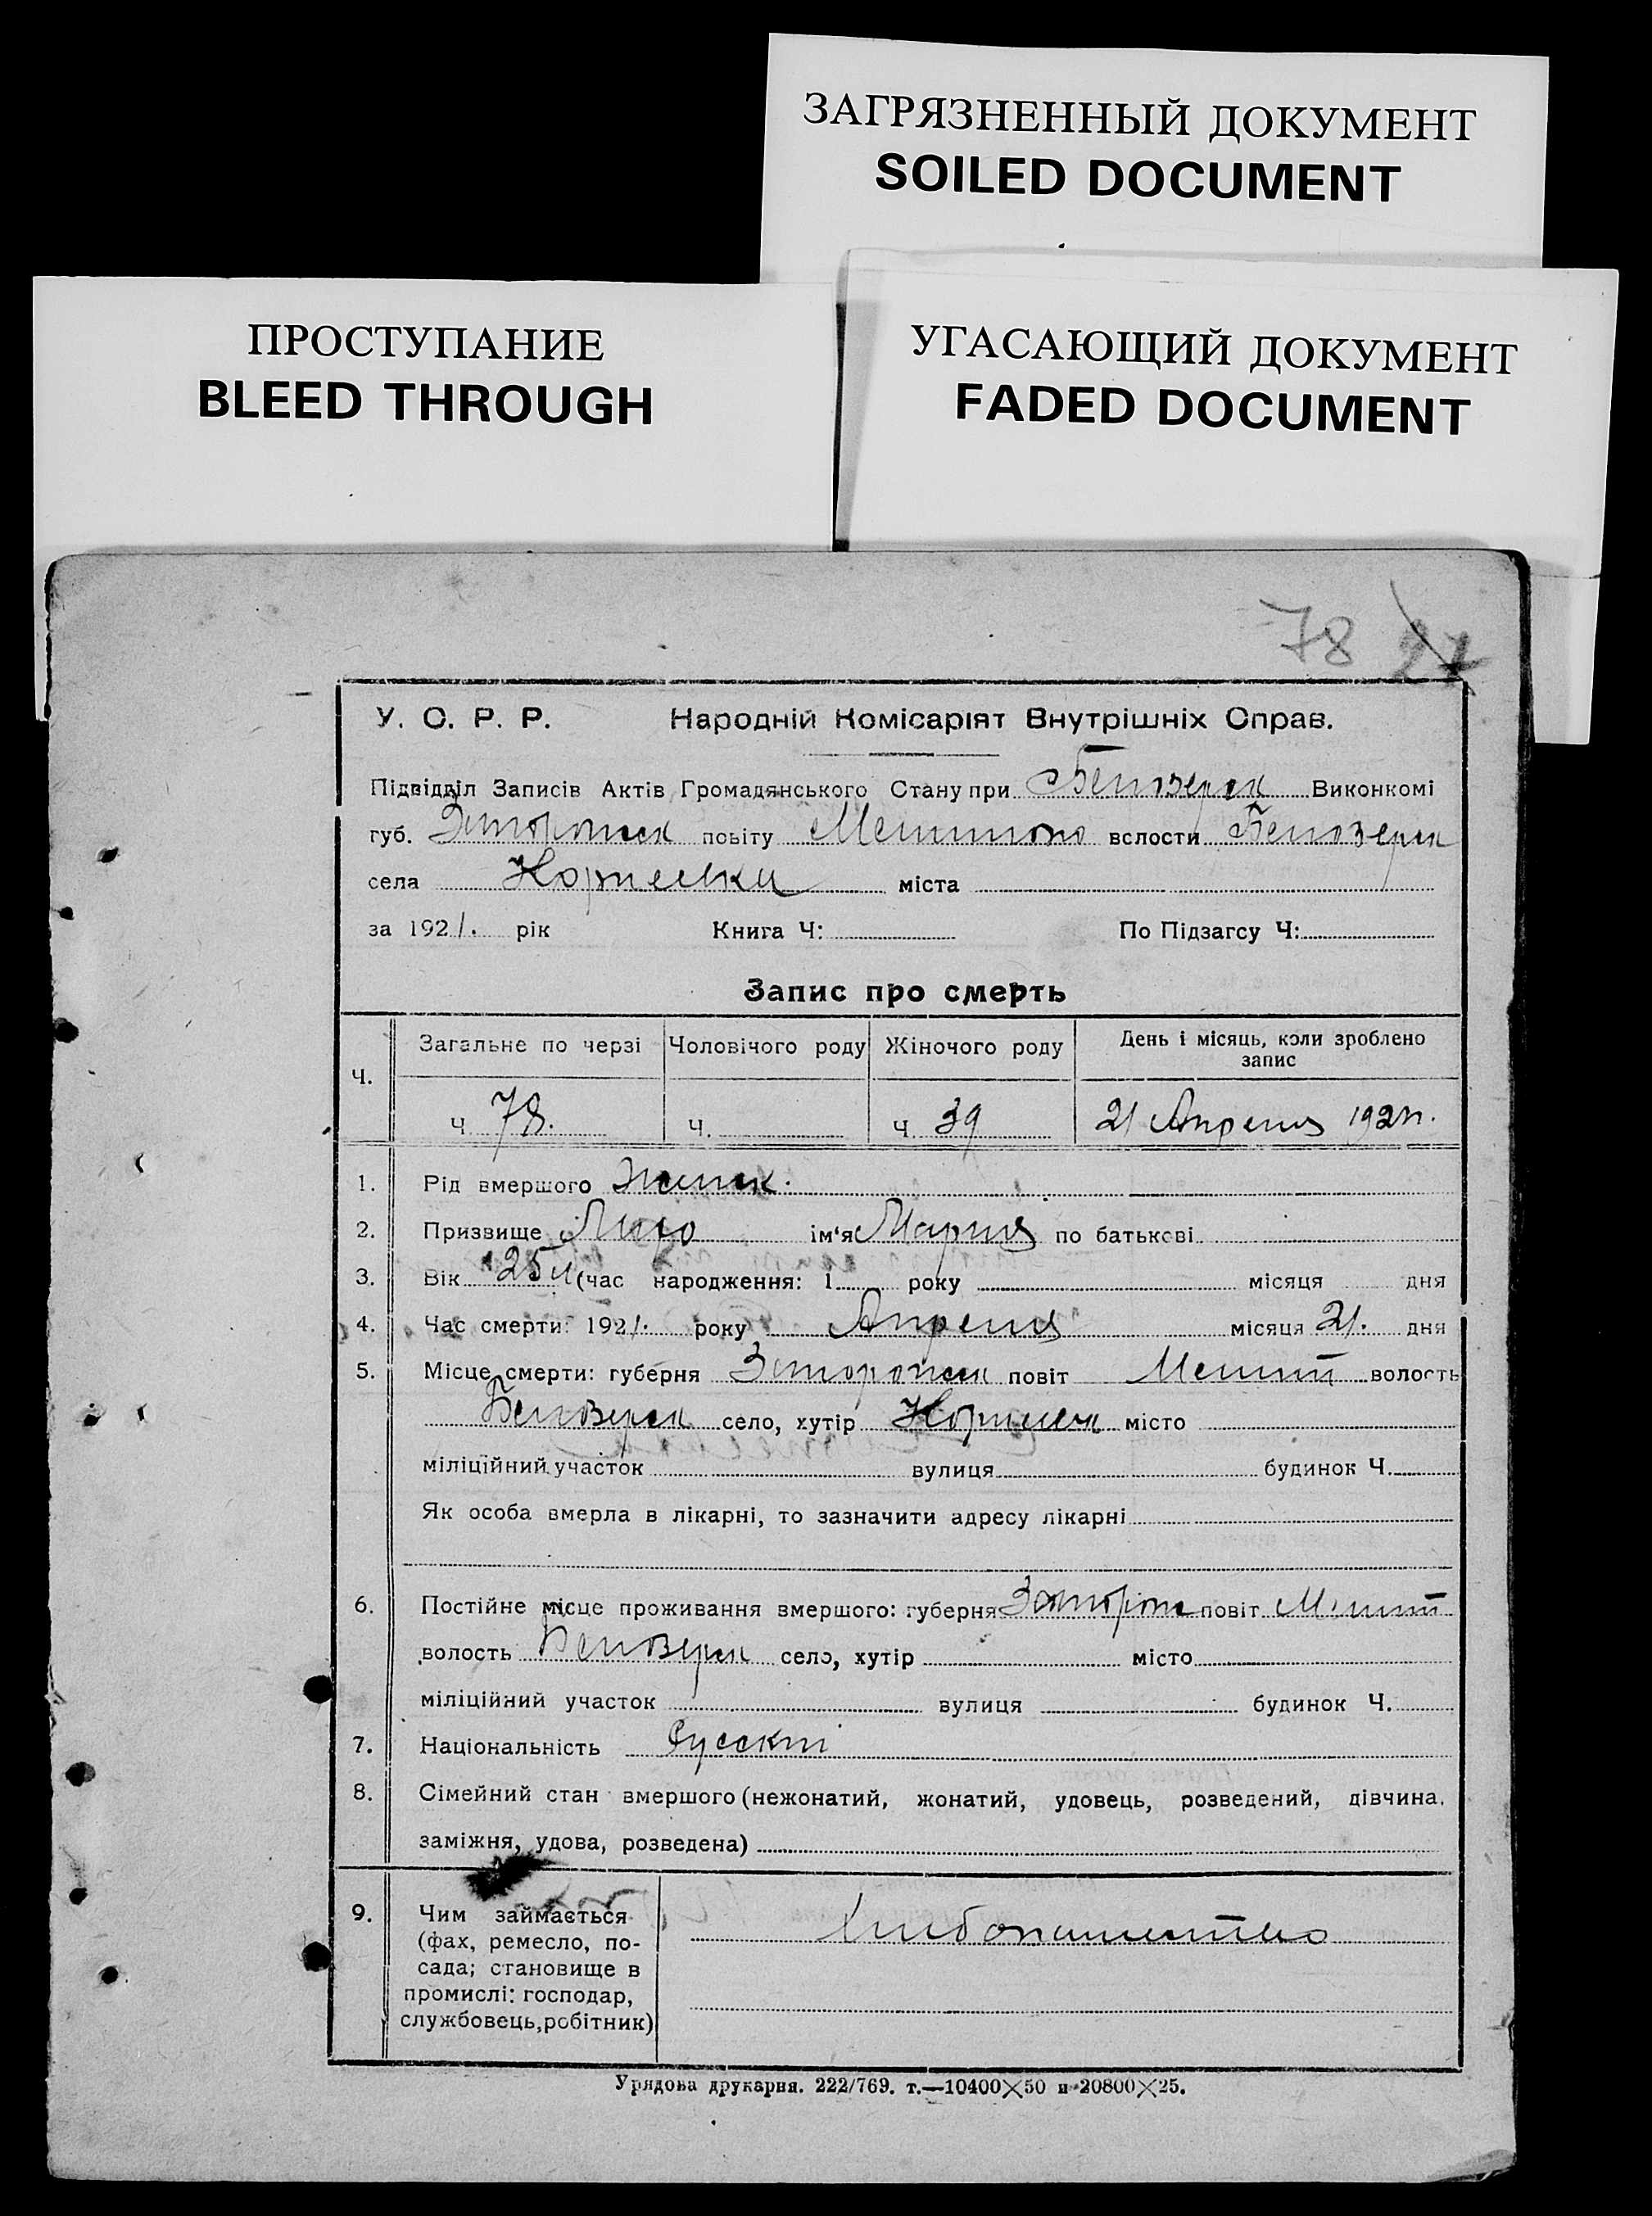 ЗАГРЯЗНЕННЫЙ ДОКУМЕНТ
SOILED DOCUMENT
ПРОСТУПАНИЕ
BLEED THROUGH
УГАСАЮЩИЙ ДОКУМЕНТ
FADED DOCUMENT
78 27
У. С. Р. Р. Народній Комісаріят Внутрішніх Справ.
Підвідділ Записів Актів Громадянського Стану при Белозерск Виконкомі
губ. Запорожск повіту Мелитоп волости Белозерск
села міста
за 1921. рік Книга Ч: По Підзагсу Ч:
Запис про смерть
Ч. Загальне по черзі Чоловічого роду Жіночого роду День і місяць, коли зроблено запис
Ч 78. Ч. Ч 39 21 Апреля 1921г.
1. Рід вмершого Женск.
2. Призвище ім'я Мария по батькові
3. Вік 25 л (час народження: 1 року місяця дня
4. Час смерти: 1921. року Апреля місяця 21. дня
5. Місце смерти: губерня Запорожск повіт Мелит волость
Белозерск село, хутір місто
міліційний участок вулиця будинок Ч.
Як особа вмерла в лікарні, то зазначити адресу лікарні
6. Постійне місце проживання вмершого: губерня Запорож повіт Мелит
волость Белозерск село, хутір місто
міліційний участок вулиця будинок Ч.
7. Національність Русский
8. Сімейний стан вмершого (нежонатий, жонатий, удовець, розведений, дівчина,
заміжня, удова, розведена)
9. Чим займається Хлебопашество
(фах, ремесло, по-
сада; становище в
промислі: господар,
службовець, робітник)
Урядова друкарня. 222/769. т.—10400×50 и 20800×25.